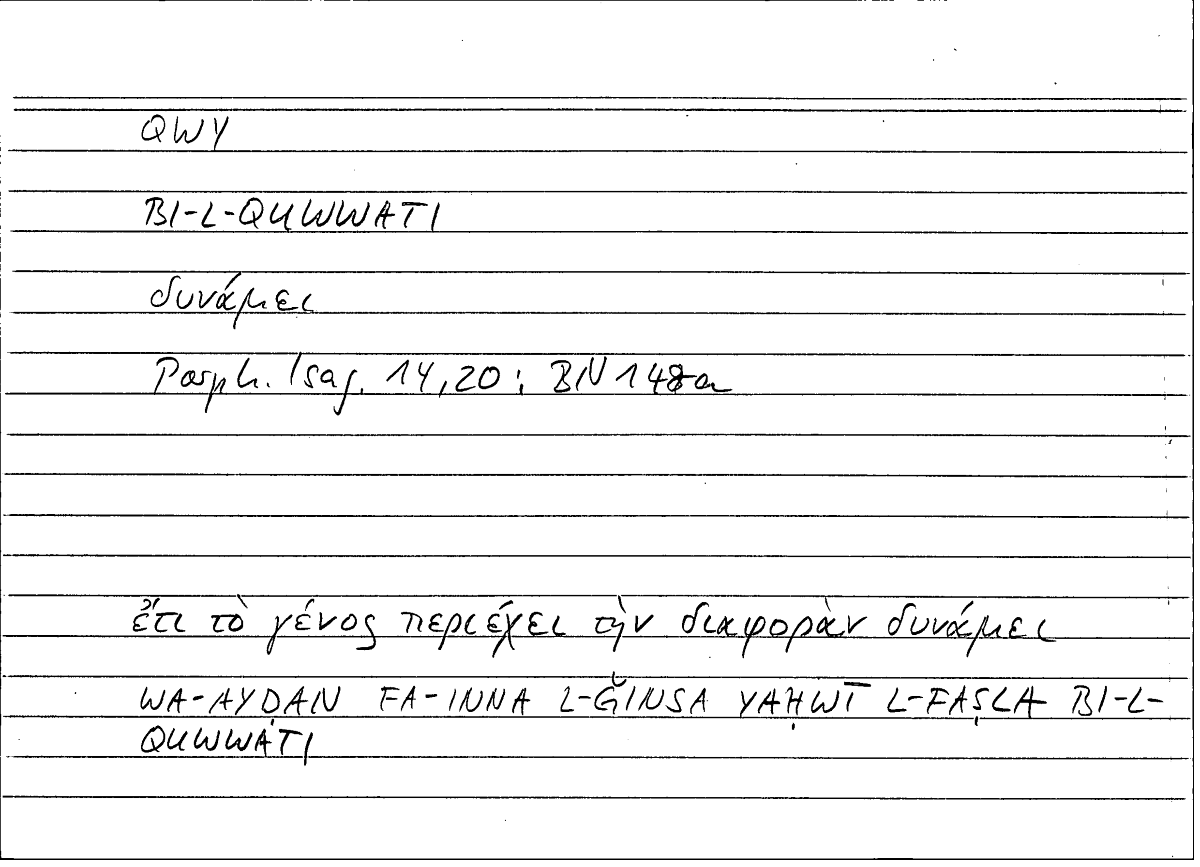 QWY
BI-L-QUWWATI
δυνάμει
Porph. Isag. 14,20; BN 148a
ἔτι τὸ γένος περιέχει τὴν διαφορὰν δυνάμει
WA-AYḌAN FA-INNA L-ǦINSA YAḤWĪ L-FAṢLA BI-L-
QUWWATI